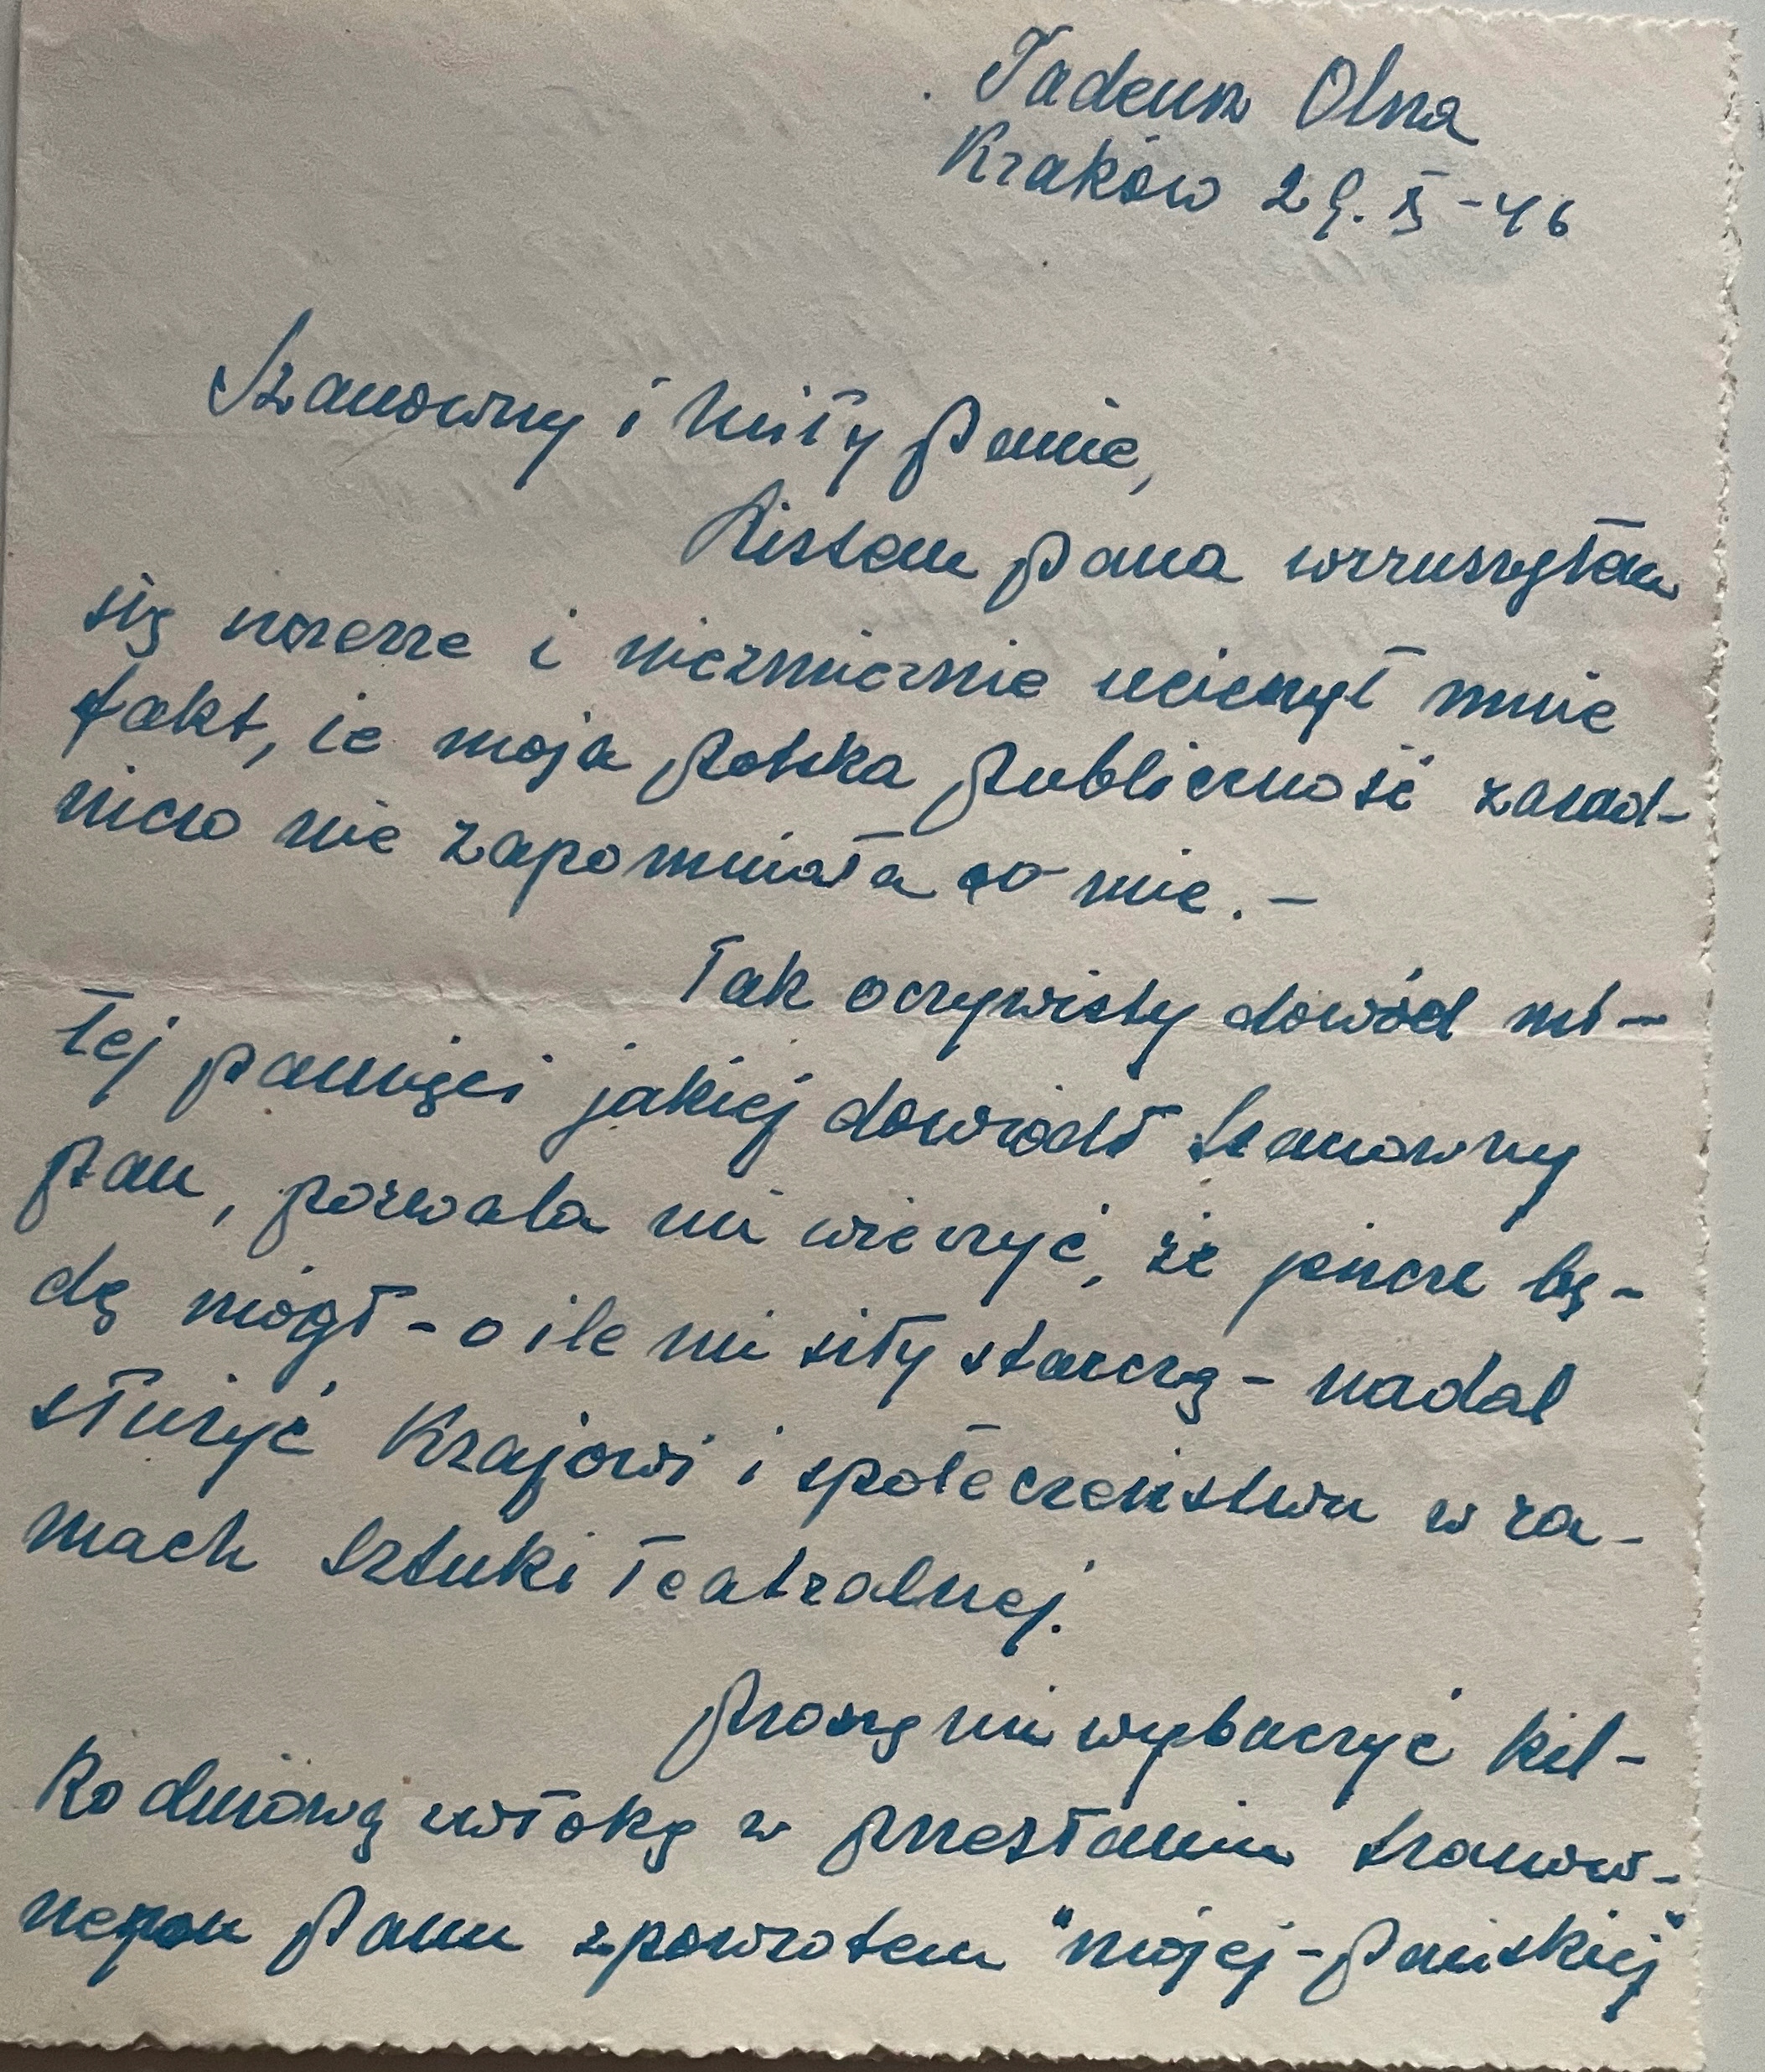 Tadeusz Olsza
Kraków 29. X - 46
Szanowny i Miły Panie,
Listem Pana wzruszyłem
się szczerze i niezmiernie ucieszył mnie
fakt, że moja polska Publiczność zasad-
niczo nie zapomniała o mnie. -
Tak oczywisty dowód mi-
łej pamięci jakiej dowiódł Szanowny
Pan, pozwala mi wierzyć, że jeszcze bę-
dę mógł - o ile mi siły starczą - nadal
służyć Krajowi i społeczeństwu w ra-
mach Sztuki Teatralnej.
Proszę mi wybaczyć kil-
kodniową zwłokę w przesłaniu szanow-
nemu Panu zpowrotem "mojej - Pańskiej"